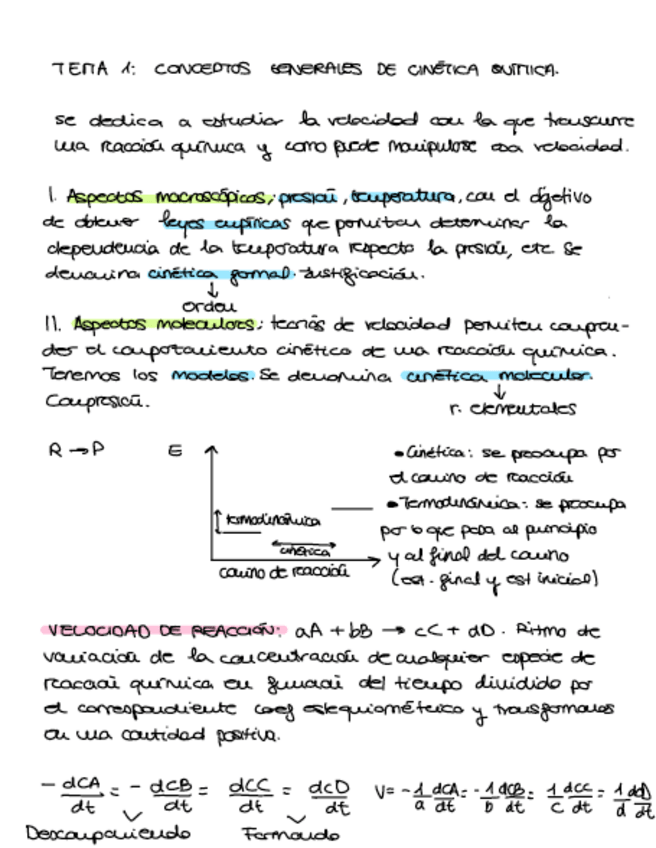 TEMA 1: CONCEPTOS GENERALES DE CINÉTICA QUÍMICA.
se dedica a estudiar la velocidad con la que transcurre
una reacción química y como puede manipulose esa velocidad.
I. Aspectos macroscópicos; presión, temperatura, con el objetivo
de obtener leyes empíricas que permiten determinar la
dependencia de la temperatura respecto la presión, etc. Se
denomina cinética formal. Justificación.
↓
orden
II. Aspectos moleculares; teorías de velocidad permiten compren-
der el comportamiento cinético de una reacción química.
Tenemos los modelos. Se denomina cinética molecular.
Compresión.
↓
r. elementales
R → P
E
termodinámica
cinética
camino de reacción
• Cinética: se preocupa por
el camino de reacción
• Termodinámica: se preocupa
por lo que pasa al principio
y al final del camino
(est. final y est inicial)
VELOCIDAD DE REACCIÓN: aA + bB → cC + dD. Ritmo de
variación de la concentración de cualquier especie de
reacción química en función del tiempo dividido por
el correspondiente coef estequiométrico y transformamos
en una cantidad positiva.
- dCA/dt = - dCB/dt = dCC/dt = dcD/dt V= - 1/a dCA/dt = - 1/b dCB/dt = 1/c dCC/dt = 1/d dD/dt
Descomponiendo Formando